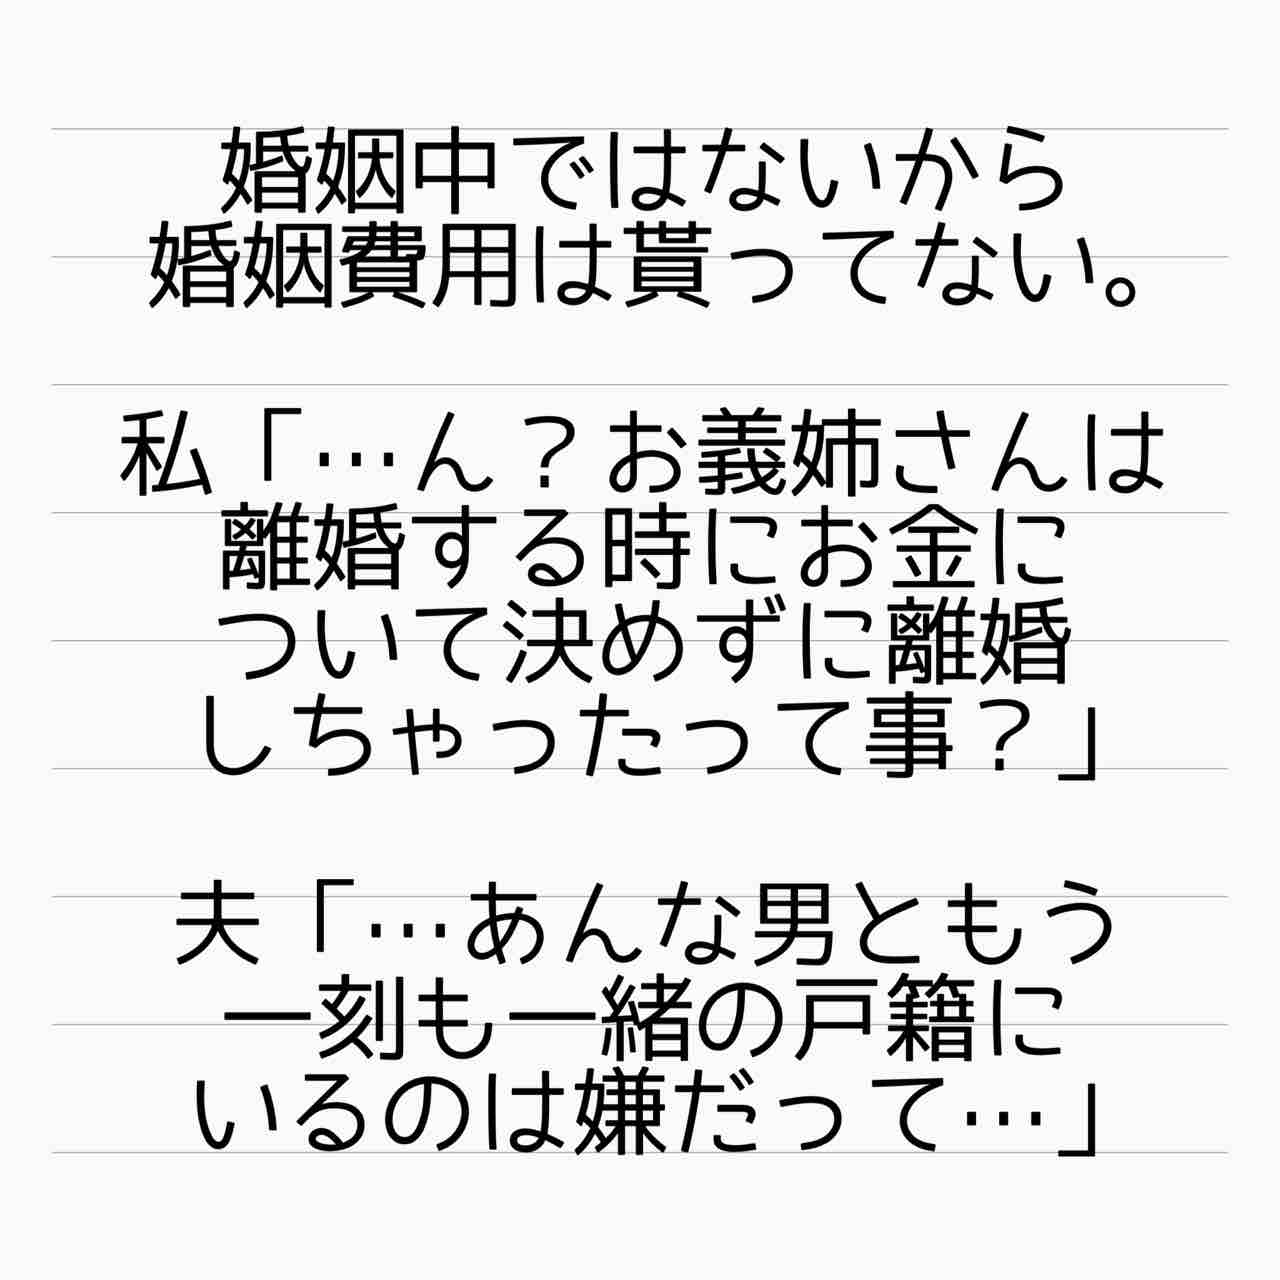 婚姻中ではないから
婚姻費用は貰ってない。
私「…ん？お義姉さんは
離婚する時にお金に
ついて決めずに離婚
しちゃったって事？」
夫「…あんな男ともう
一刻も一緒の戸籍に
いるのは嫌だって…」